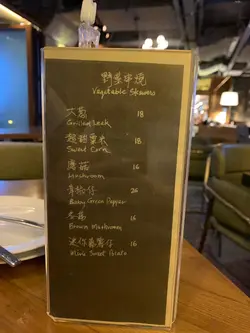 野菜串燒
Vegetable Skewers
大葱 18
Grilled Leek
粟米 18
Sweet Corn
蘑菇 16
Mushroom
青椒仔 26
Baby Green Pepper
冬菇 16
Brown Mushroom
迷你蕃薯仔 16
Mini Sweet Potato